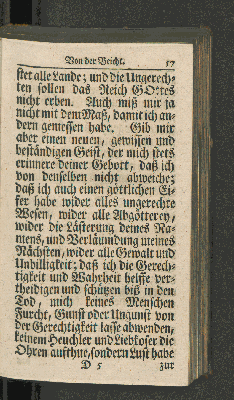 Von der Beicht. 57
ſtet alle Lande; und die Ungerech-
ten ſollen das Reich GOttes
nicht erben. Auch miß mir ja
nicht mit dem Maß, damit ich an-
dern gemeſſen habe. Gib mir
aber einen neuen, gewiſſen und
beſtändigen Geiſt, der mich ſtets
erinnere deiner Gebott, daß ich
von denſelben nicht abweiche;
daß ich auch einen göttlichen Ei-
fer habe wider alles ungerechte
Weſen, wider alle Abgötterey,
wider die Läſterung deines Na-
mens, und Verläumdung meines
Nächſten, wider alle Gewalt und
Unbilligkeit; daß ich die Gerech-
tigkeit und Wahrheit helffe ver-
theidigen und ſchützen biß in den
Tod, mich keines Menſchen
Furcht, Gunſt oder Ungunſt von
der Gerechtigkeit laſſe abwenden,
keinem Heuchler und Liebkoſer die
Ohren aufthue, ſondern Luſt habe
D 5 zur